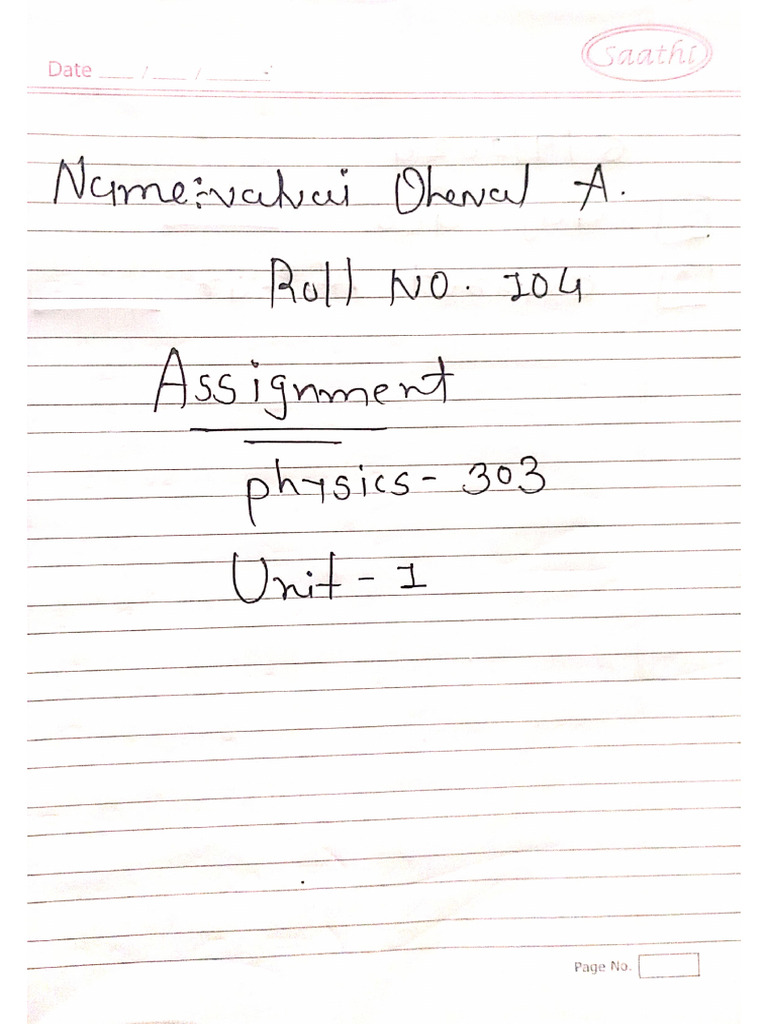 Date ___ / ___ / _____
Saathi
Name:- Dheval A.
Roll NO. 104
Assignment
physics - 303
Unit - 1
Page No.